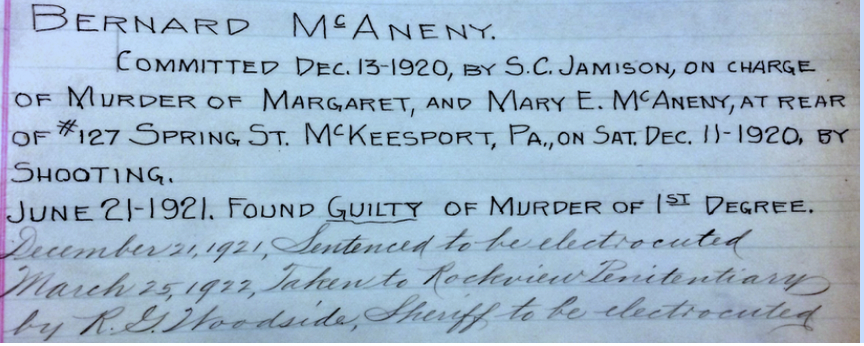 BERNARD McANENY.
COMMITTED DEC. 13-1920, BY S.C. JAMISON, ON CHARGE
OF MURDER OF MARGARET, AND MARY E. McANENY, AT REAR
OF #127 SPRING ST. McKEESPORT, PA., ON SAT. DEC. 11-1920, BY
SHOOTING.
JUNE 21-1921. FOUND GUILTY OF MURDER OF 1ST DEGREE.
December 21, 1921, Sentenced to be electrocuted
March 25, 1922, Taken to Rockview Penitentiary
by R. G. Woodside, Sheriff to be electrocuted